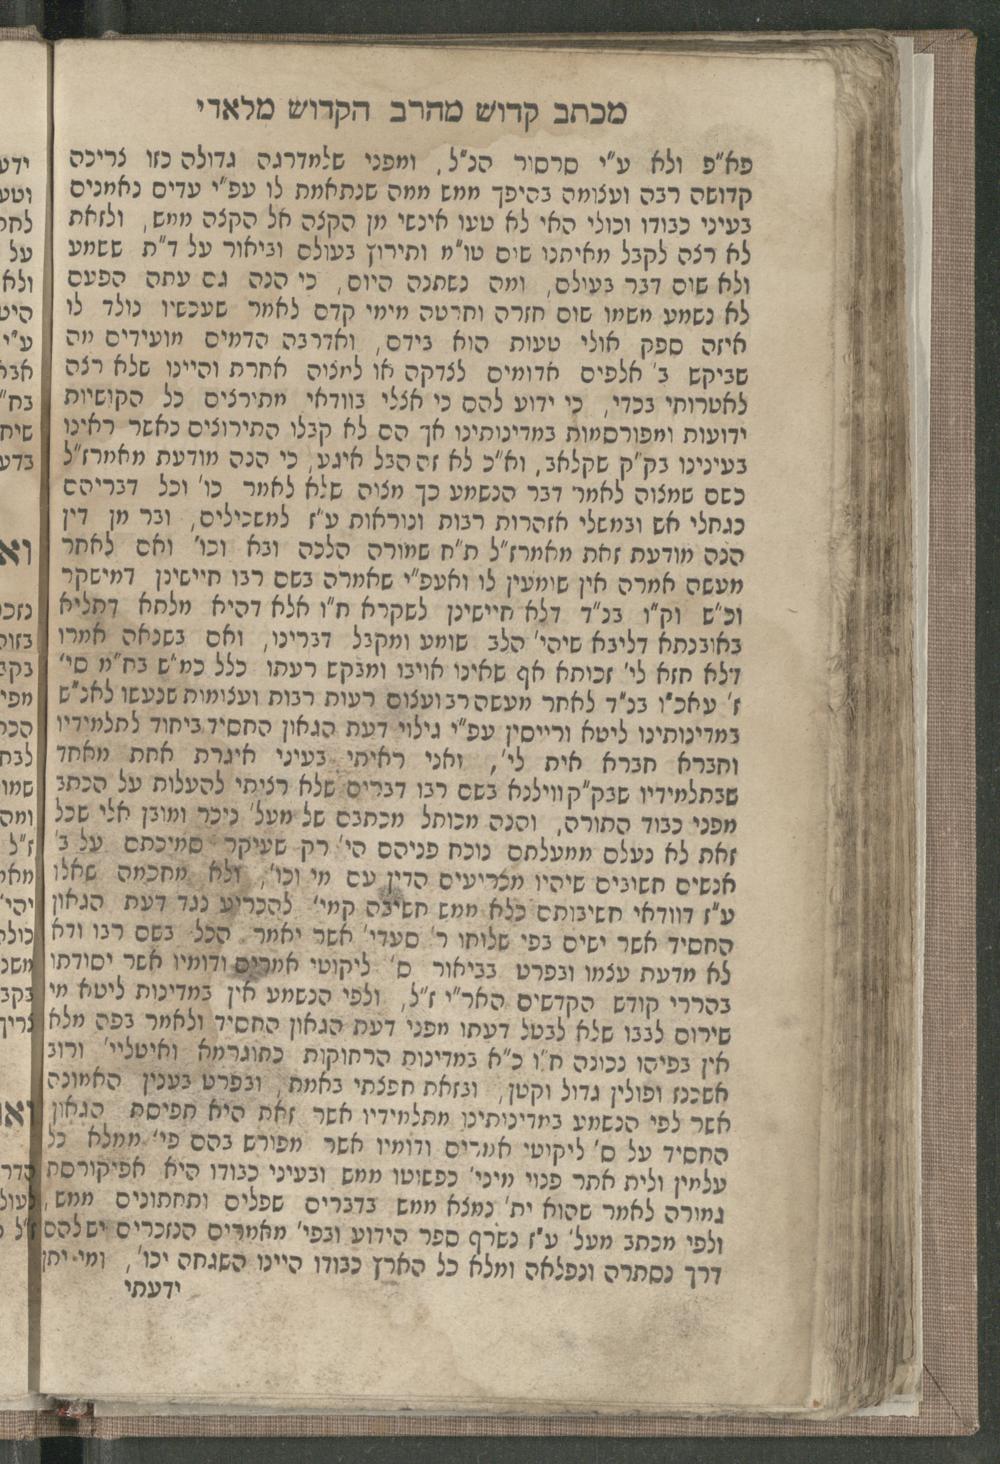 מכתב קדוש מהרב הקדוש מלאדי
פא"פ ולא ע"י סרסור הנ"ל, ומפני שלמדרגה גדולה כזו צריכה
קדושה רבה ועצומה בהיפך ממש ממה שנתאמת לו עפ"י עדים נאמנים
בעיני כבודו וכולי האי לא טעו אינשי מן הקצה אל הקצה ממש, ולזאת
לא רצה לקבל מאיתנו שום טו"מ ותירוץ בעולם וביאור על ד"ת ששמע
ולא שום דבר בעולם, ומה נשתנה היום, כי הנה גם עתה הפעם
לא נשמע משמו שום חזרה וחרטה מימי קדם לאמר שעכשיו נולד לו
איזה ספק אולי טעות הוא בידם, ואדרבה הדמים מועידים מה
שביקש ב' אלפים אדומים לצדקה או למצוה אחרת והיינו שלא רצה
לאטרוחי בכדי, כי ידוע להם כי אצלי בוודאי מתירצים כל הקושיות
ידועות ומפורסמות במדינותינו אך הם לא קבלו התירוצים כאשר ראינו
בעינינו בק"ק שקלאב, וא"כ לא זה הבל איגע, כי הנה מודעת מאמרז"ל
כשם שמצוה לאמר דבר הנשמע כך מצוה שלא לאמר כו' וכל דבריהם
כגחלי אש ובמשלי אזהרות רבות ונוראות ע"ז למשכילים, ובר מן דין
הנה מודעת זאת מאמרז"ל ת"ח שמורה הלכה ובא וכו' ואם לאחר
מעשה אמרה אין שומעין לו ואעפ"י שאמרה בשם רבו חיישינן דמישקר
וכ"ש וק"ו בנ"ד דלא חיישינן לשקרא ח"ו אלא דהיא מלתא דתליא
באובנתא דליבא שיהי' הלב שומע ומקבל דברינו, ואם בשנאה אמרו
דלא חזא לי' זכותא אף שאינו אויבו ומבקש רעתו כלל כמ"ש בח"מ סי'
ז' עאכ"ו בנ"ד לאחר מעשה רב ועצום רעות רבות ועצומות שנעשו לאנ"ש
במדינותינו ליטא ורייסין עפ"י גילוי דעת הגאון החסיד ביחוד לתלמידיו
וחברא חברא אית לי', ואני ראיתי בעיני איגרת אחת מאחד
שבתלמידיו שבק"ק ווילנא בשם רבו דברים שלא רציתי להעלות על הכתב
מפני כבוד התורה, והנה מכותל מכתבם של מעל' ניכר ומובן אלי שכל
זאת לא נעלם ממעלתם נוכח פניהם הי' רק שעיקר סמיכתם על ב'
אנשים חשובים שיהיו מכריעים הדין עם מי וכו', ולא מחכמה שאלו
ע"ז דוודאי חשיבותם כלא ממש חשיבה קמי' להכריע נגד דעת הגאון
החסיד אשר ישים בפי שלוחו ר' סעדי' אשר יאמר הכל בשם רבו ודא
לא מדעת עצמו ובפרט בביאור ס' ליקוטי אמרים ודומיו אשר יסודתו
בהררי קודש הקדשים האר"י ז"ל, ולפי הנשמע אין במדינות ליטא מי
שירום לבבו שלא לבטל דעתו מפני דעת הגאון החסיד ולאמר בפה מלא
אין בפיהו נכונה ח"ו כ"א במדינות הרחוקות כתוגרמא ואיטליי' ורוב
אשכנז ופולין גדול וקטן, ובזאת חפצתי באמת, ובפרט בענין האמונה
אשר לפי הנשמע במדינותינו מתלמידיו אשר זאת היא תפיסת הגאון
החסיד על ס' ליקוטי אמרים ודומיו אשר מפורש בהם פי' ממלא כל
עלמין ולית אתר פנוי מיני' כפשוטו ממש ובעיני כבודו היא אפיקורסת
גמורה לאמר שהוא ית' נמצא ממש בדברים שפלים ותחתונים ממש,
ולפי מכתב מעל' ע"ז נשרף ספר הידוע ובפי' מאמרים הנזכרים יש להם
דרך נסתרה ונפלאה ומלא כל הארץ כבודו היינו השגחה יכו', ומי יתן
ידעתי